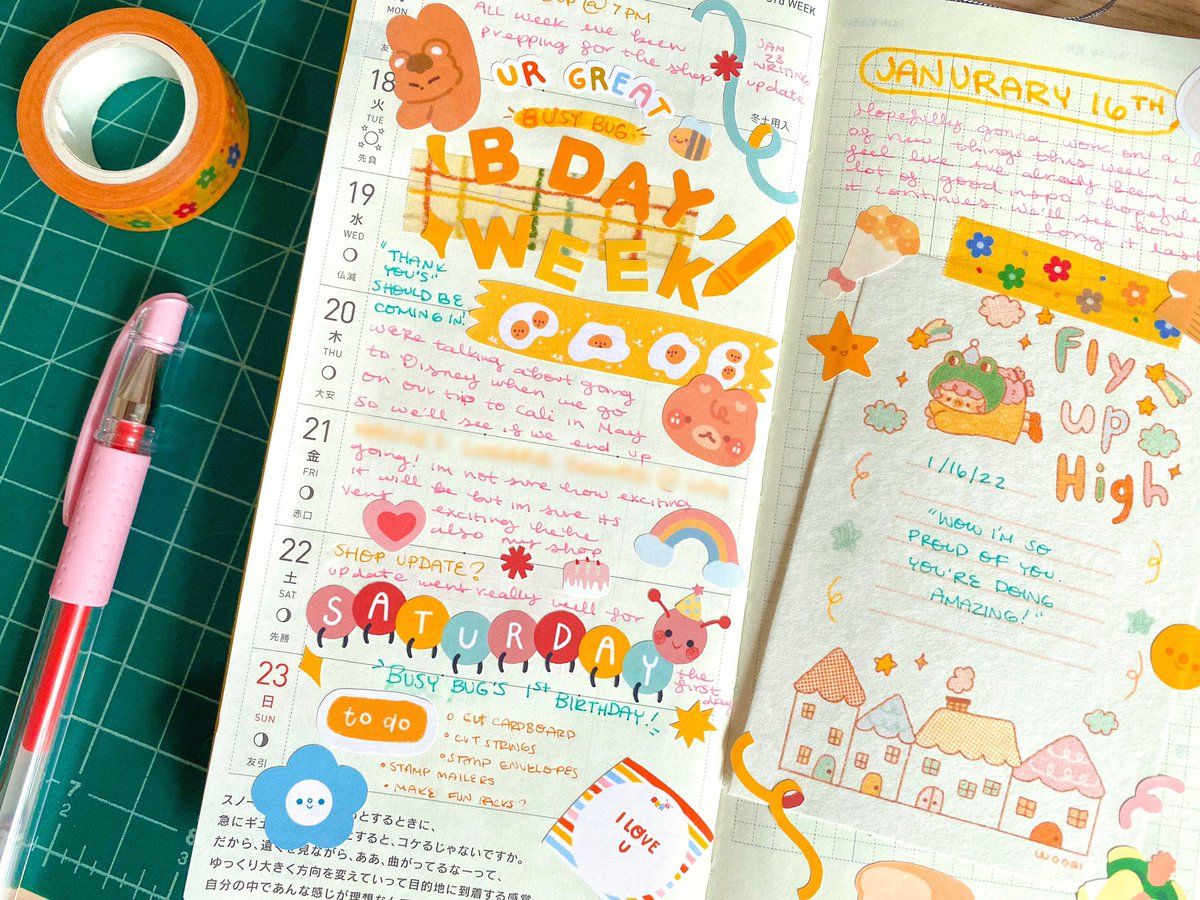 @ 7PM
3rd WEEK
MON
All week ive been
prepping for the shop
JAN
23
WRITING
update
UR GREAT
BUSY BUG
冬土用入
B DAY
WEEK
18
火
TUE
先負
19
水
WED
仏滅
"THANK
YOU'S"
SHOULD BE
COMING IN!
20
木
THU
大安
we're talking about going
to Disney when we go
on our trip to Cali in May
So we'll see if we end up
21
金
FRI
赤口
going! im not sure how exciting
it will be but im sure its
very exciting hehe
also my shop
22
土
SAT
先勝
SHOP UPDATE?
update went really well for
SATURDAY
the
first
day
23
日
SUN
友引
BUSY BUG'S 1ST BIRTHDAY!
to do
CUT CARDBOARD
CUT STRINGS
STAMP ENVELOPES
STAMP MAILERS
MAKE FUN PACKS?
I LOVE
U
スノー
っとするときに、
急にギュ
とすると、コケるじゃないですか。
だから、遠くを見ながら、ああ、曲がってるなーって、
ゆっくり大きく方向を変えていって目的地に到着する感覚
自分の中であんな感じが理想なん
4th WEEK
JANURARY 16TH
Hopefully gonna work on a
of new things this week. I
feel like ive already been a
lot of good inspo - hopefully
it continues. we'll see how
long it last
Fly
up
High
1/16/22
"WOW I'M SO
PROUD OF YOU.
YOU'RE DOING
AMAZING!"
wooai
7
2
8
3